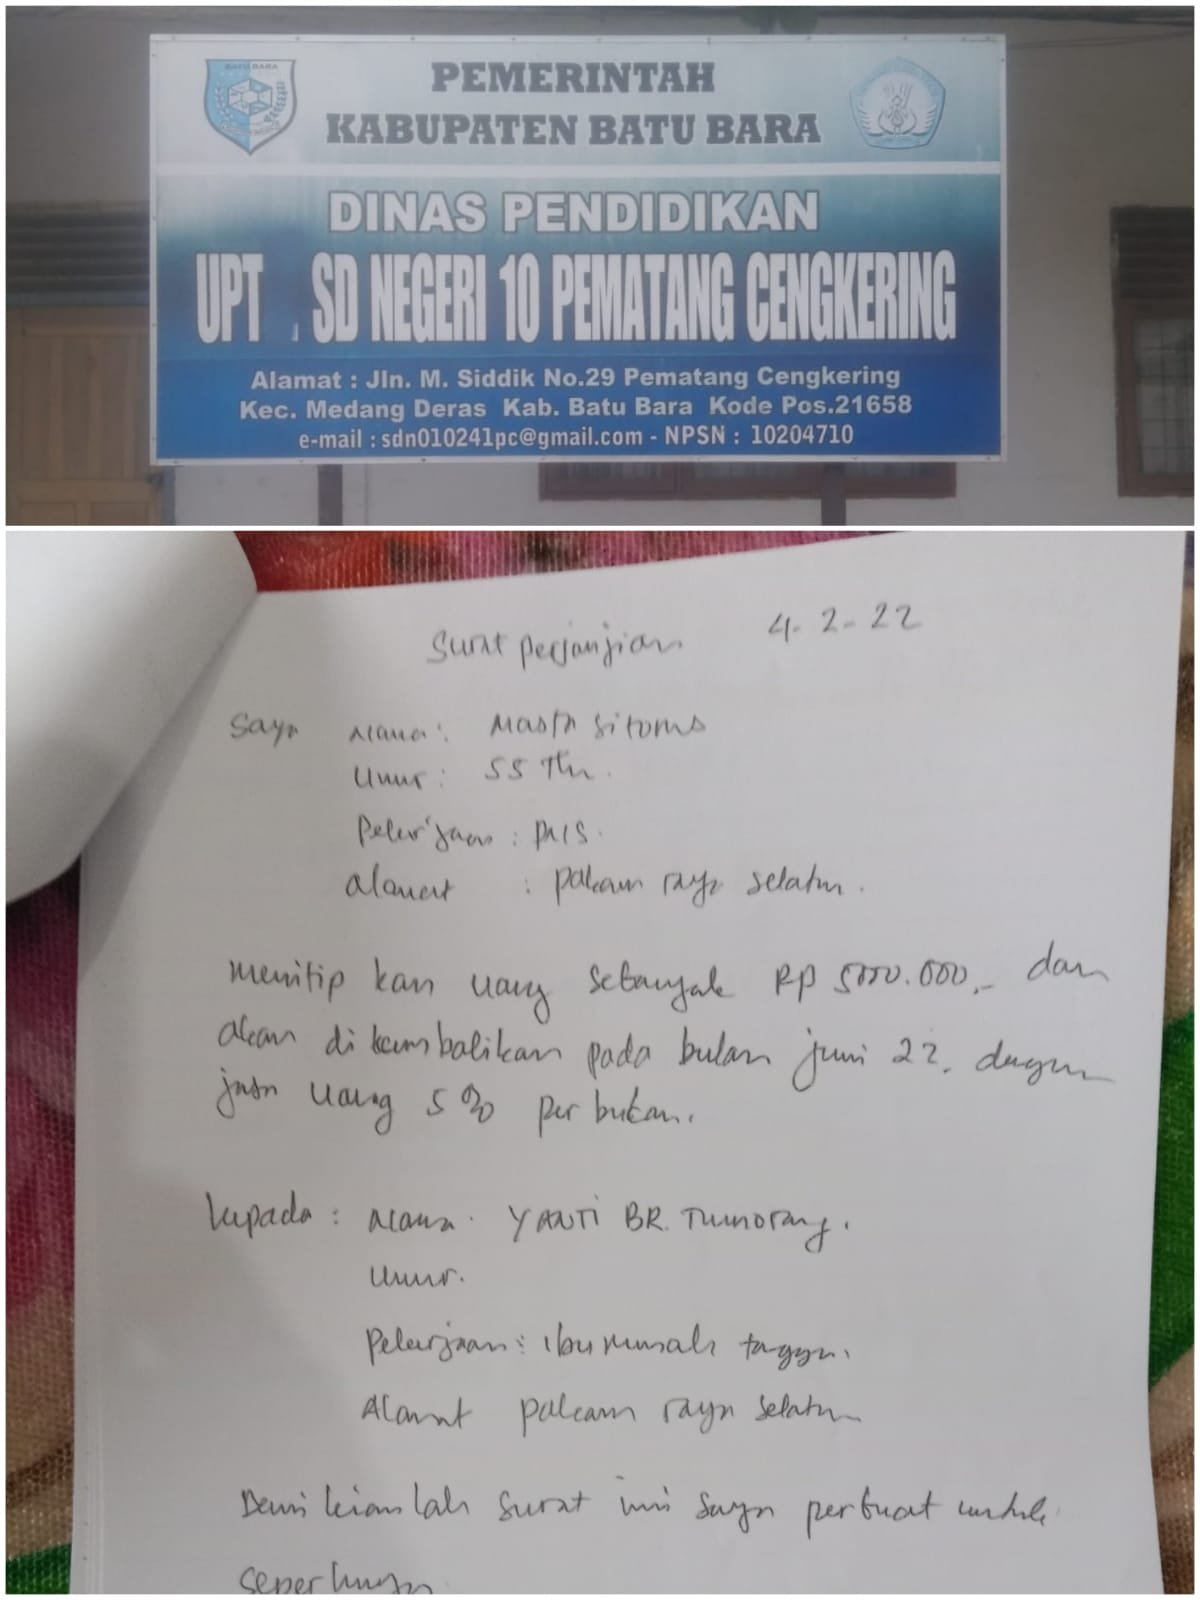 BATU BARA
PEMERINTAH
KABUPATEN BATU BARA
DINAS PENDIDIKAN
UPT . SD NEGERI 10 PEMATANG CENGKERING
Alamat : Jln. M. Siddik No.29 Pematang Cengkering
Kec. Medang Deras Kab. Batu Bara Kode Pos.21658
e-mail : sdn010241pc@gmail.com - NPSN : 10204710
Surat perjanjian 4-2-22
Saya Nama : Masta Sitorus
Umur : 55 Thn.
Pekerjaan : PNS.
Alamat : pakam raya selatan.
menitip kan uang sebanyak Rp 5000.000,- dan
akan di kembalikan pada bulan juni 22. dengan
jasa uang 5% per bulan.
kepada : Nama. YANTI BR. Tumorang.
Umur.
Pekerjaan : ibu rumah tangga.
Alamat pakam raya selatan
Demi kian lah surat ini saya perbuat untuk
seperlunya